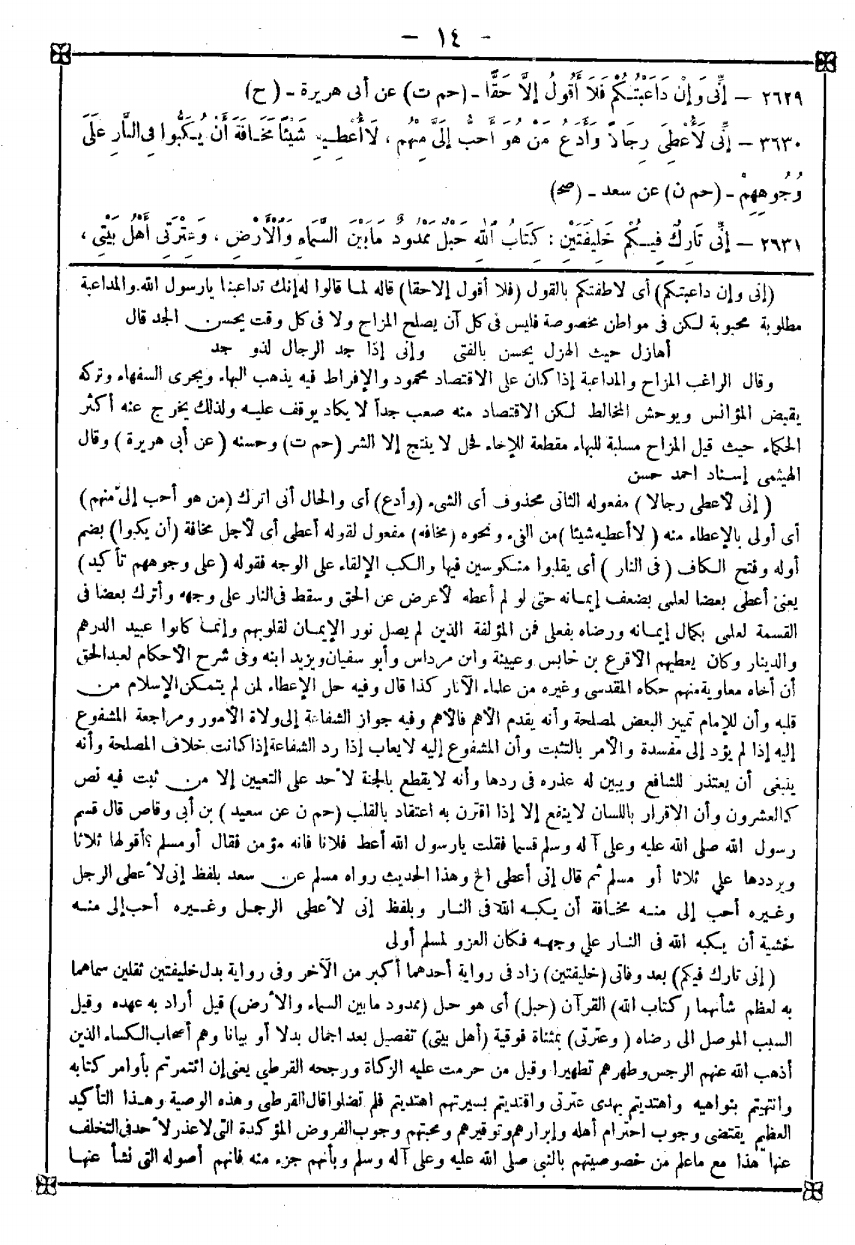 - ١٤ -
٢٦٢٩ - إِنِّى وَإِنْ دَاعَبْتُكُمْ فَلَا أَقُولُ إِلَّا حَقًّا - (حم ت) عن أبى هريرة - (ح)
٣٦٣٠ - إِنِّى لَأُعْطِى رِجَالًا وَأَدَعُ مَنْ هُوَ أَحَبُّ إِلَىَّ مِنْهُمْ ، لَا أُعْطِيهِ شَيْئًا مَخَافَةَ أَنْ يُكَبُّوا فِى النَّارِ عَلَى
وُجُوهِهِمْ - (حم ن) عن سعد - (صح)
٢٦٣١ - إِنِّى تَارِكٌ فِيكُمْ خَلِيفَتَيْنِ : كِتَابُ اللهِ حَبْلٌ مَمْدُودٌ مَابَيْنَ السَّمَاءِ وَالْأَرْضِ ، وَعِتْرَتِى أَهْلُ بَيْتِى ،
(إنى وإن داعبتكم) أى لاطفتكم بالقول (فلا أقول إلاحقا) قاله لما قالوا له إنك تداعبنا يارسول الله.والمداعبة
مطلوبة محبوبة لكن فى مواطن مخصوصة فليس فى كل آن يصلح المزاح ولا فى كل وقت يحسن الجد قال
أهازل حيث الهزل يحسن بالفتى وإنى إذا جد الرجال لذو جد
وقال الراغب المزاح والمداعبة إذا كان على الاقتصاد محمود والإفراط فيه يذهب البهاء ويجرى السفهاء وتركه
يقبض المؤانس ويوحش المخالط لكن الاقتصاد منه صعب جداً لا يكاد يوقف عليه ولذلك يخرج عنه أكثر
الحكماء حيث قيل المزاح مسلبة للبهاء مقطعة للإخاء فحل لا ينتج إلا الشر (حم ت) وحسنه (عن أبى هريرة) وقال
الهيثمى إسناد احمد حسن
(إنى لأعطى رجالا) مفعوله الثانى محذوف أى الشىء (وأدع) أى والحال أنى اترك (من هو أحب إلىّ منهم)
أى أولى بالإعطاء منه (لاأعطيه شيئا) من الفىء ونحوه (مخافه) مفعول لقوله أعطى أى لأجل مخافة (أن يكبوا) بضم
أوله وفتح الكاف (فى النار) أى يقلبوا منكوسين فيها والكب الإلقاء على الوجه فقوله (على وجوههم تأكيد)
يعنى أعطى بعضا لعلمى بضعف إيمانه حتى لو لم أعطه لأعرض عن الحق وسقط فى النار على وجهه وأترك بعضا فى
القسمة لعلمى بكمال إيمانه ورضاه بفعلى فمن المؤلفة الذين لم يصل نور الإيمان لقلوبهم وإنما كانوا عبيد الدرهم
والدينار وكان يعطيهم الأقرع بن حابس وعيينة وابن مرداس وأبو سفيان ويزيد ابنه وفى شرح الأحكام لعبدالحق
أن أخاه معاوية منهم حكاه المقدسى وغيره من علماء الآثار كذا قال وفيه حل الإعطاء لمن لم يتمكن الإسلام من
قلبه وأن للإمام تمييز البعض لمصلحة وأنه يقدم الأهم فالأهم وفيه جواز الشفاعة إلى ولاة الأمور ومراجعة المشفوع
إليه إذا لم يؤد إلى مفسدة والأمر بالتثبت وأن المشفوع إليه لايعاب إذا رد الشفاعة إذا كانت خلاف المصلحة وأنه
ينبغى أن يعتذر للشافع ويبين له عذره فى ردها وأنه لايقطع بالجنة لأحد على التعيين إلا من ثبت فيه نص
كالعشرون وأن الاقرار باللسان لاينفع إلا إذا اقترن به اعتقاد بالقلب (حم ن عن سعيد) بن أبى وقاص قال قسم
رسول الله صلى الله عليه وعلى آله وسلم قسما فقلت يارسول الله أعط فلانا فانه مؤمن فقال أومسلم ؟أقولها ثلاثا
ويرددها علي ثلاثا أو مسلم ثم قال إنى أعطى الخ وهذا الحديث رواه مسلم عن سعد بلفظ إنى لأعطى الرجل
وغيره أحب إلى منه مخافة أن يكبه الله فى النار وبلفظ إنى لأعطى الرجل وغيره أحب إلى منه
خشية أن يكبه الله فى النار علي وجهه فكان العزو لمسلم أولى
(إنى تارك فيكم) بعد وفاتى (خليفتين) زاد فى رواية أحدهما أكبر من الآخر وفى رواية بدل خليفتين ثقلين سماهما
به لعظم شأنهما (كتاب الله) القرآن (حبل) أى هو حبل (ممدود مابين السماء والأرض) قيل أراد به عهده وقيل
السبب الموصل الى رضاه (وعترتى) بمثناة فوقية (أهل بيتى) تفصيل بعد اجمال بدلا أو بيانا وهم أصحاب الكساء الذين
أذهب الله عنهم الرجس وطهرهم تطهيرا وقيل من حرمت عليه الزكاة ورجحه القرطبى يعنى إن ائتمرتم بأوامر كتابه
وانتهيتم بنواهيه واهتديتم بهدى عترتى واقتديتم بسيرتهم اهتديتم فلم تضلوا قال القرطبى وهذه الوصية وهذا التأكيد
العظيم يقتضى وجوب احترام أهله وإبرارهم وتوقيرهم ومحبتهم وجوب الفروض المؤكدة التى لاعذر لأحد فى التخلف
عنها هذا مع ماعلم من خصوصيتهم بالنبي صلى الله عليه وعلى آله وسلم وبأنهم جزء منه فانهم أصوله التى نشأ عنها